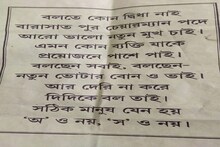 বলতে কোন দ্বিধা নাই
বারাসাত পুর চেয়ারম্যান পদে
আরো ভালো নতুন মুখ চাই।
এমন কোন ব্যক্তি যাকে
প্রয়োজনে পাশে পাই।
বলছেন সবাই, বলছেন-
নতুন ভোটার বোন ও ভাই।
আর দেরি না করে
দিদিকে বল তাই।
সঠিক মানুষ যেন হয়
'অ' ও নয়, 'স' ও নয়।